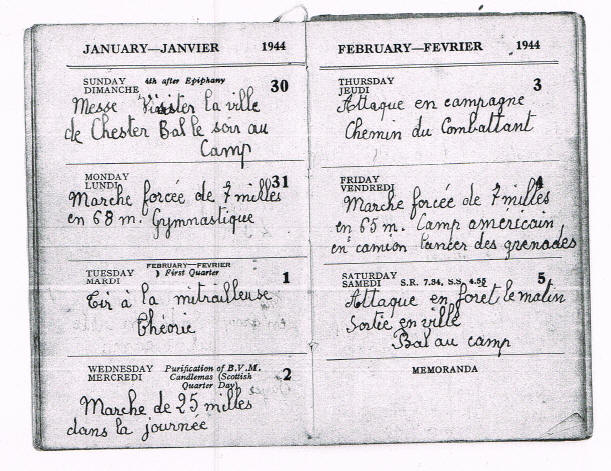 JANUARY—JANVIER 1944
SUNDAY 4th after Epiphany 30
DIMANCHE
Messe Visister la ville
de Chester Bal le soir au
Camp
MONDAY 31
LUNDI
Marche forcée de 7 milles
en 68 m. Gymnastique
FEBRUARY—FEVRIER
TUESDAY First Quarter 1
MARDI
Tir à la mitrailleuse
Théorie
WEDNESDAY Purification of B.V.M. 2
MERCREDI Candlemas (Scottish
Quarter Day)
Marche de 25 milles
dans la journée
FEBRUARY—FEVRIER 1944
THURSDAY 3
JEUDI
Attaque en campagne
Chemin du Combattant
FRIDAY 4
VENDREDI
Marche forcée de 7 milles
en 65 m. Camp américain
en camion lancer des grenades
SATURDAY 5
SAMEDI S.R. 7.34, S.S. 4.55
Attaque en foret le matin
Sortie en ville
Bal au camp
MEMORANDA